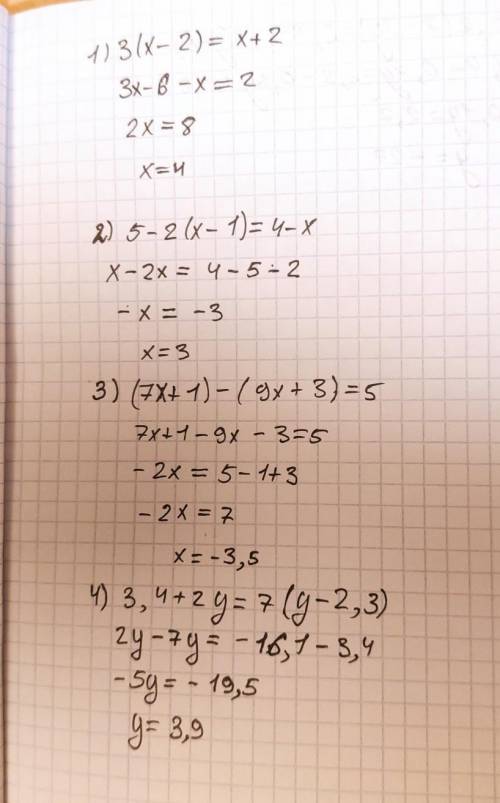 1) 3(x-2)= x+2
3x-6-x=2
2x=8
x=4
2) 5-2(x-1)=4-x
x-2x= 4-5-2
-x= -3
x=3
3) (7x+1)-(9x+3)=5
7x+1-9x-3=5
-2x=5-1+3
-2x=7
x=-3,5
4) 3,4+2y=7(y-2,3)
2y-7y= -16,1-3,4
-5y=-19,5
y=3,9